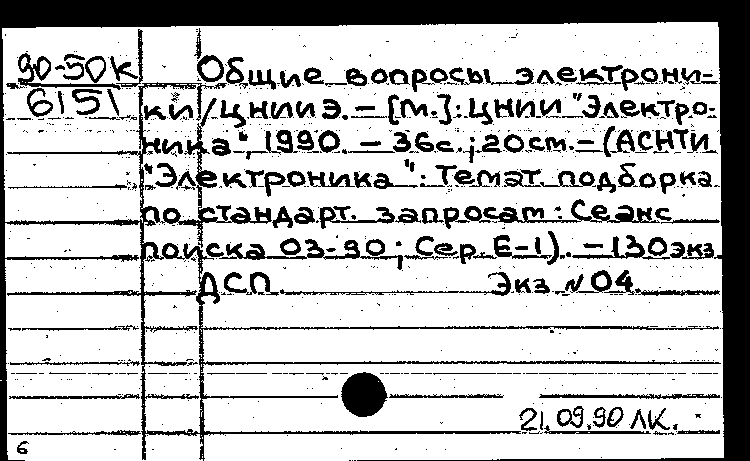 90-50к
6151
Общие вопросы электрони-
ки/ЦНИИЭ. – [М.]: ЦНИИ "Электро-
ника", 1990. – 36с.; 20см. – (АСНТИ
"Электроника": Темат. подборка
по стандарт. запросам: Сеанс
поиска 03-90; Сер. Е-1). – 130экз.
ДСП. Экз №04.
21.09.90 ЛК.
6